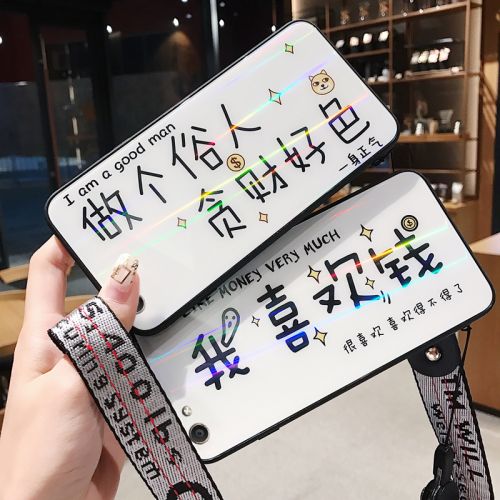 I am a good man
做个俗人
贪财好色
一身正气
MONEY VERY MUCH
我喜欢钱
很喜欢喜欢得不得了